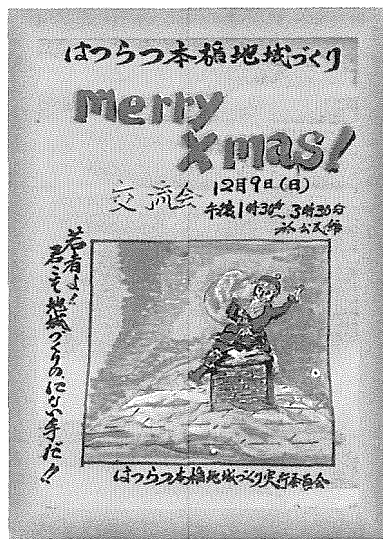 はつらつ本楯地域づくり
merry
xmas!
交流会
12月9日(日)
午後1時30分 3時30分
於公民館
若者よ!
君こそ地域づくりの、にない手だ!!
はつらつ本楯地域づくり実行委員会